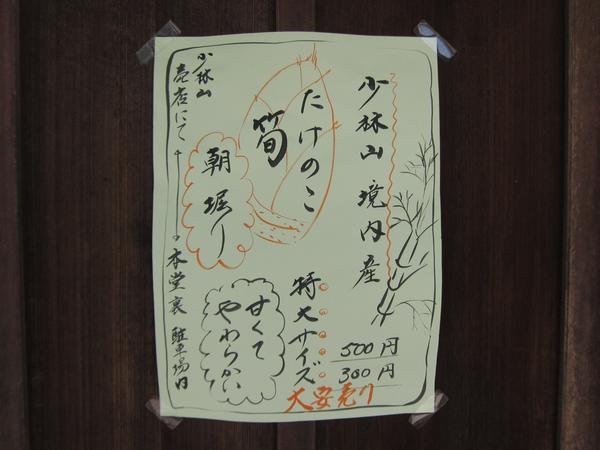 少林山境内産
たけのこ
筍
朝堀り
特大サイズ
500円
300円
大安売り
甘くて
やわらかい
少林山
売店にて
本堂裏 駐車場口